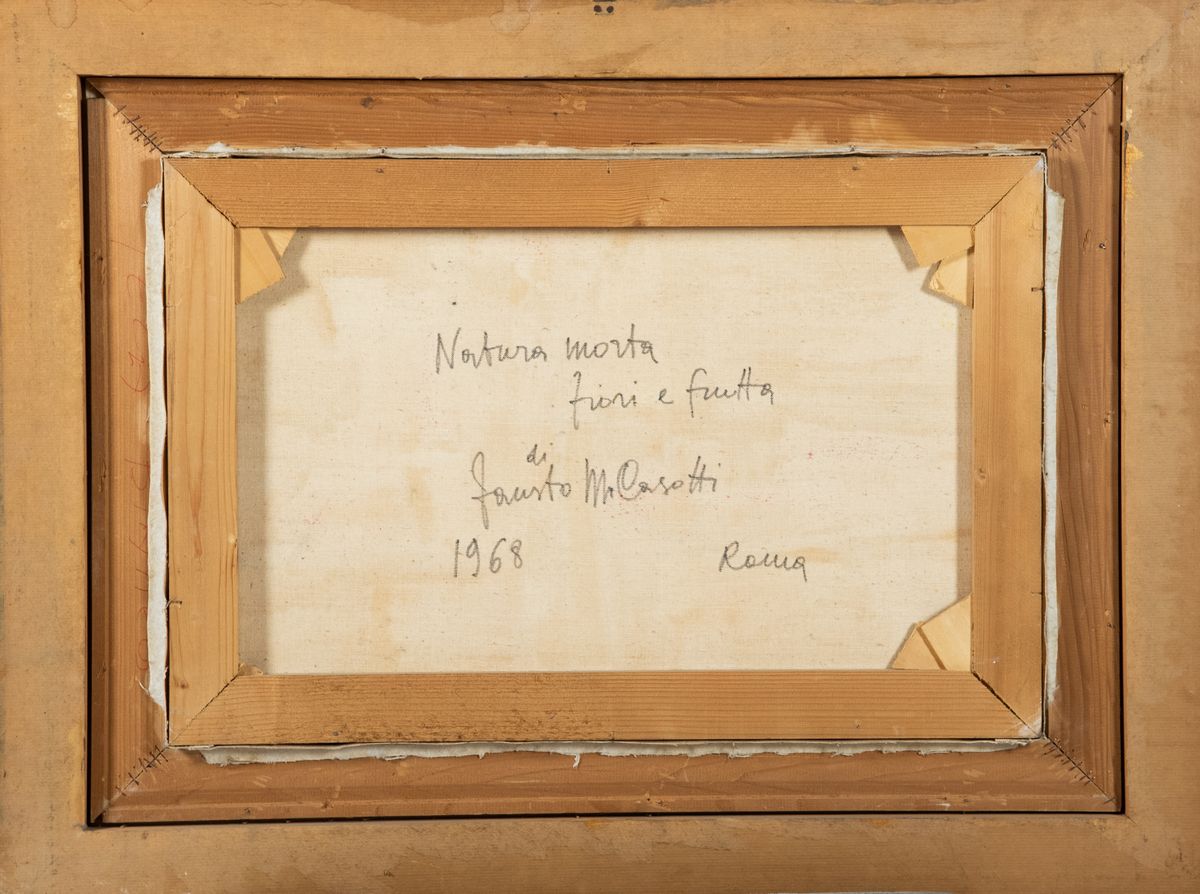 Natura morta
fiori e frutta
di
Fausto M. Casotti
1968 Roma